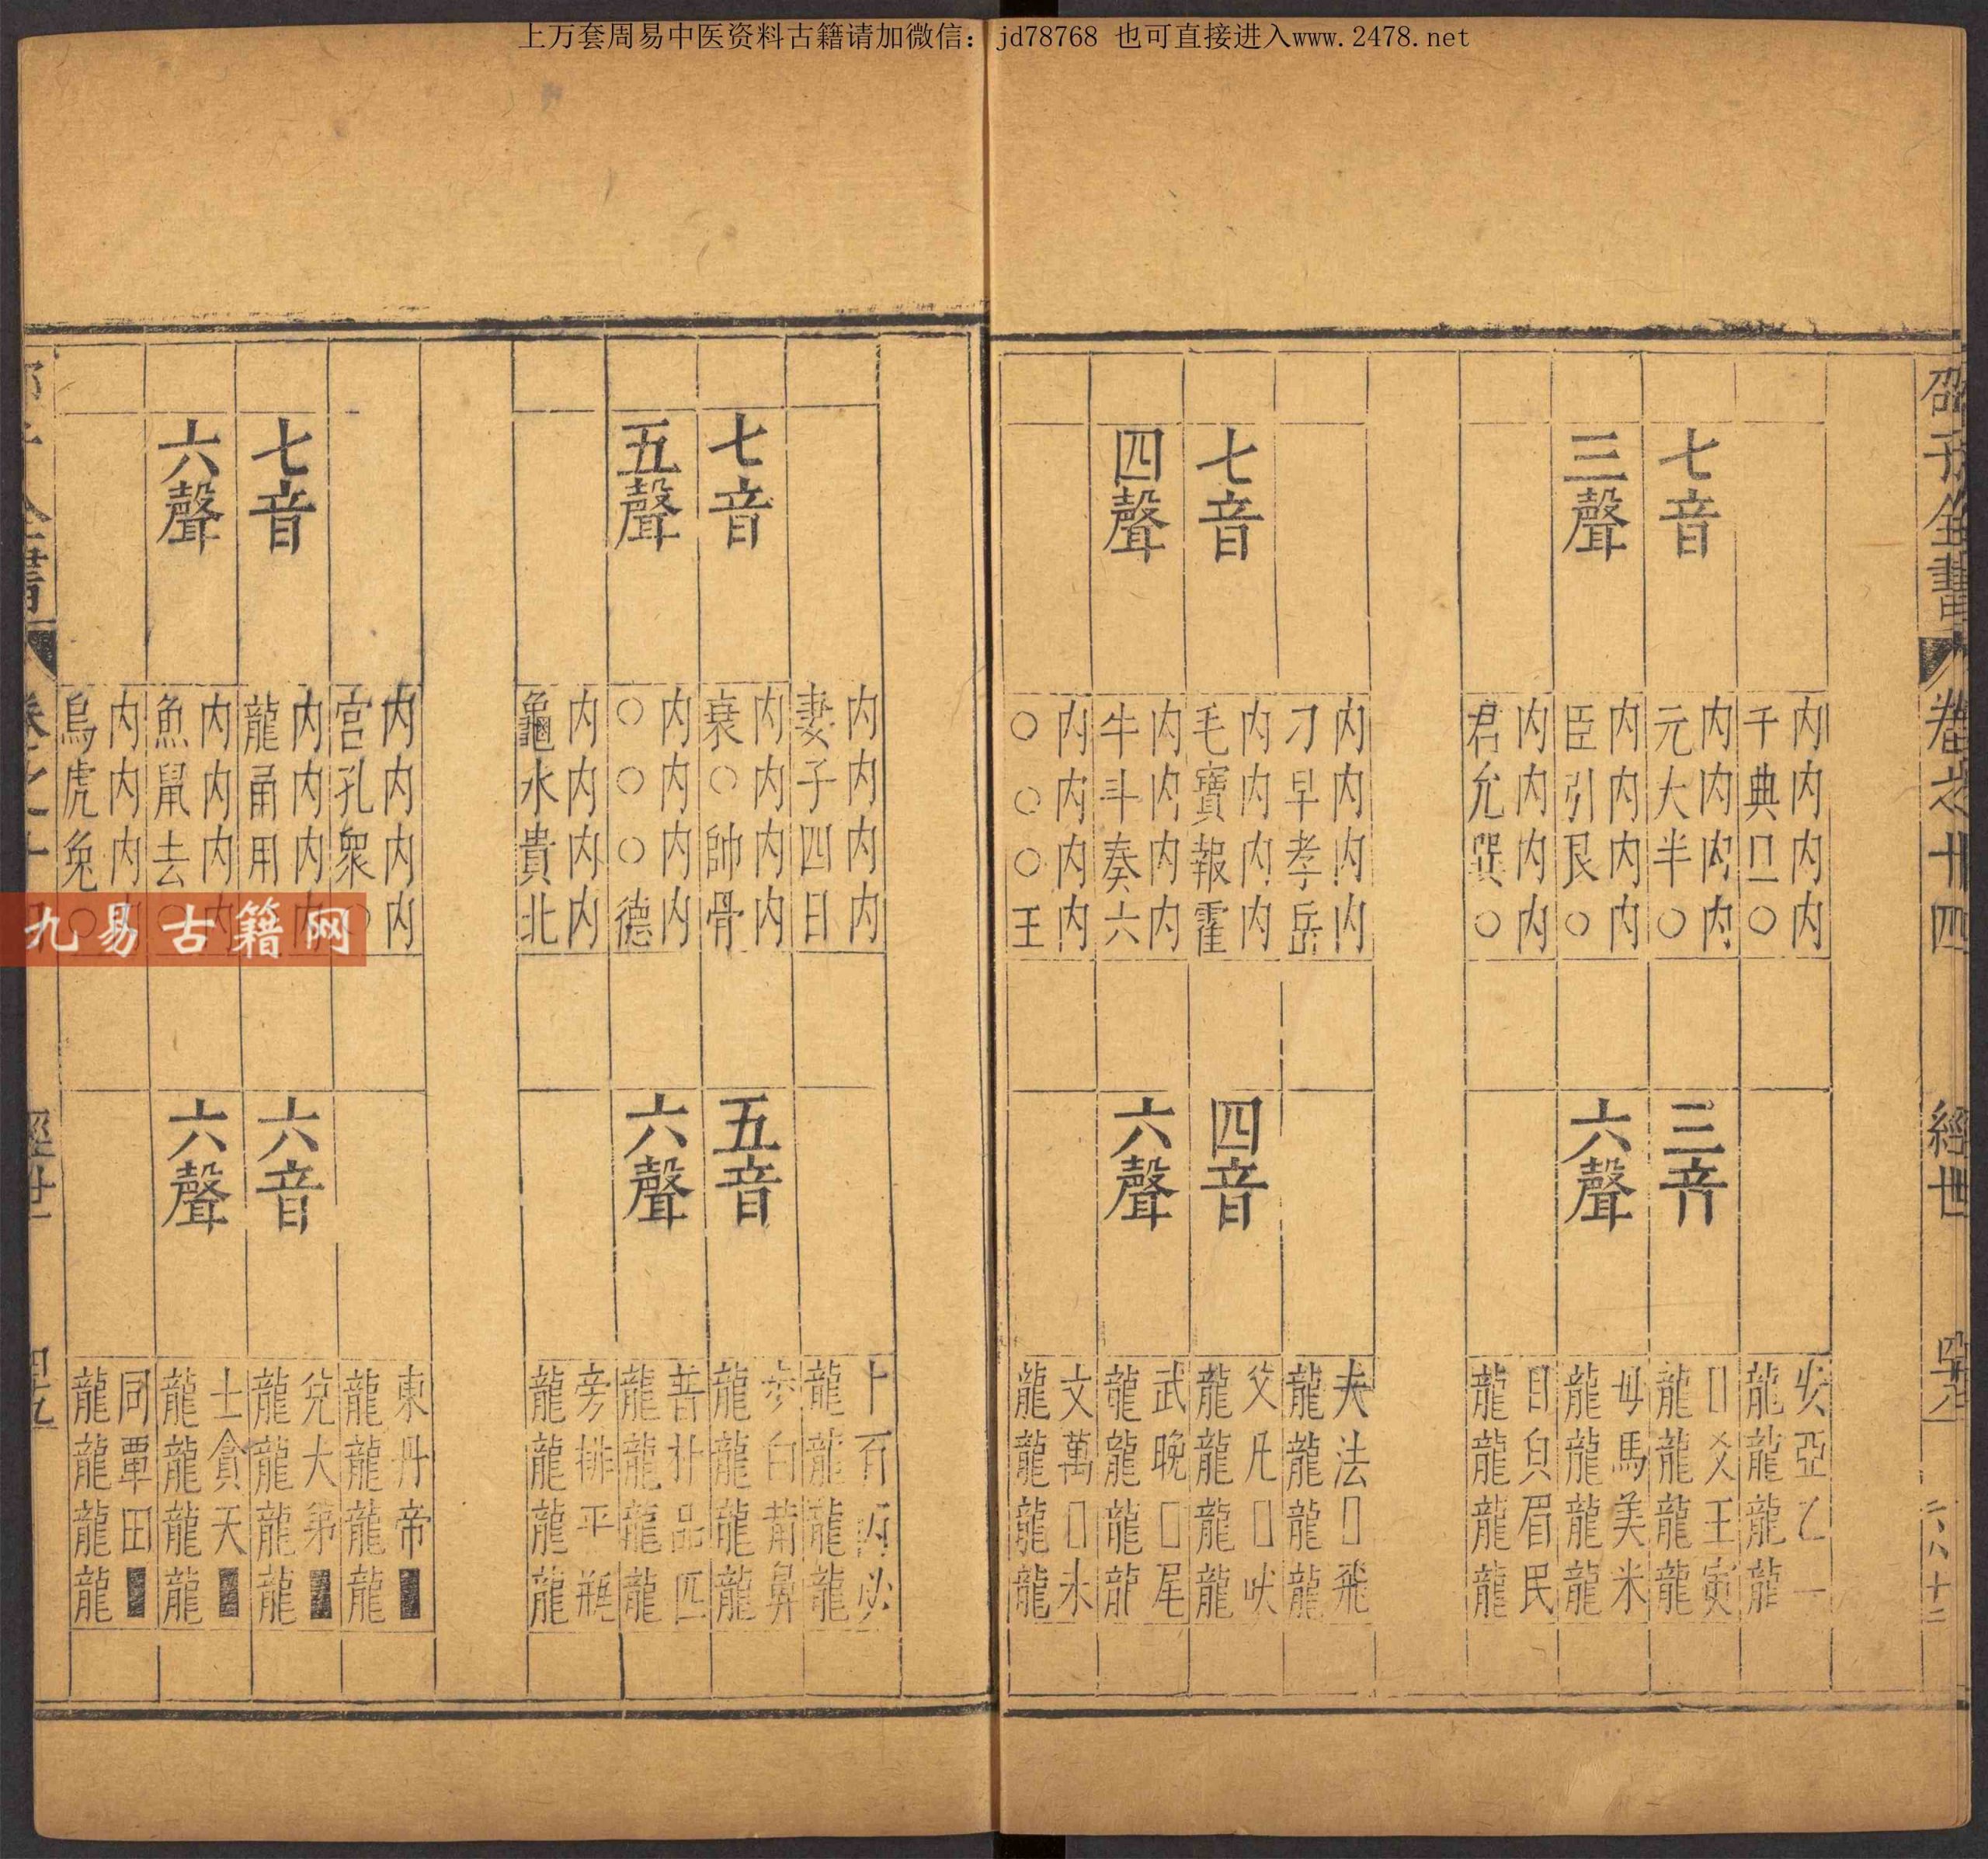 上万套周易中医资料古籍请加微信：jd78768 也可直接进入www.2478.net
邵子全書 卷之廿四 經世
七音
三聲
内内内内
千典旦○
内内内内
元犬半○
内内内内
臣引艮○
内内内内
君允巽○
三音
六聲
安亞乙一
龍龍龍龍
□爻王寅
龍龍龍龍
母馬美米
龍龍龍龍
目皃眉民
龍龍龍龍
七音
四聲
内内内内
刀早孝岳
内内内内
毛寳報霍
内内内内
牛斗奏六
内内内内
○○○玉
四音
六聲
夫法□飛
龍龍龍龍
父凡□吠
龍龍龍龍
武晚□尾
龍龍龍龍
文萬□未
龍龍龍龍
七音
五聲
内内内内
妻子四日
内内内内
衰○帥骨
内内内内
○○○德
内内内内
龜水貴北
五音
六聲
卜百丙必
龍龍龍龍
步白荀鼻
龍龍龍龍
普朴品匹
龍龍龍龍
旁排平瓶
龍龍龍龍
七音
六聲
内内内内
宫孔衆○
内内内内
龍甬用
内内内内
魚鼠去○
内内内
烏虎兔○
六音
六聲
東丹帝■
龍龍龍龍
兌大第■
龍龍龍龍
土貪天■
龍龍龍龍
同覃田■
龍龍龍龍
經世
九易古籍网